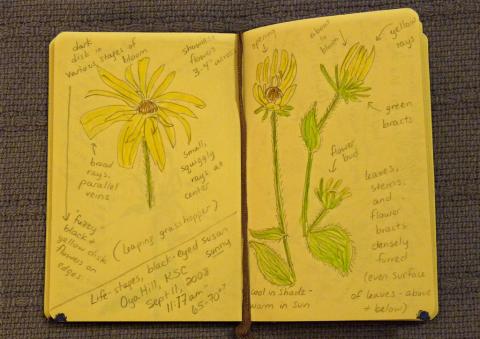 dark
disk in
various stages of
bloom
showiest
flowers
3-4" across
broad
rays,
parallel
veins
small,
squiggly
rays at
center
"fuzzy"
black +
yellow disk
flowers on
edges
(leaping grasshopper)
Life stages, black-eyed susan
Oya Hill, KSC
sunny
Sept 11, 2008
65-70°
opening
about
to
bloom
yellow
rays
green
bracts
flower
bud
leaves,
stems,
and
flower
bracts
densely
furred
(even surface
of leaves - above
+ below)
cool in shade -
warm in sun